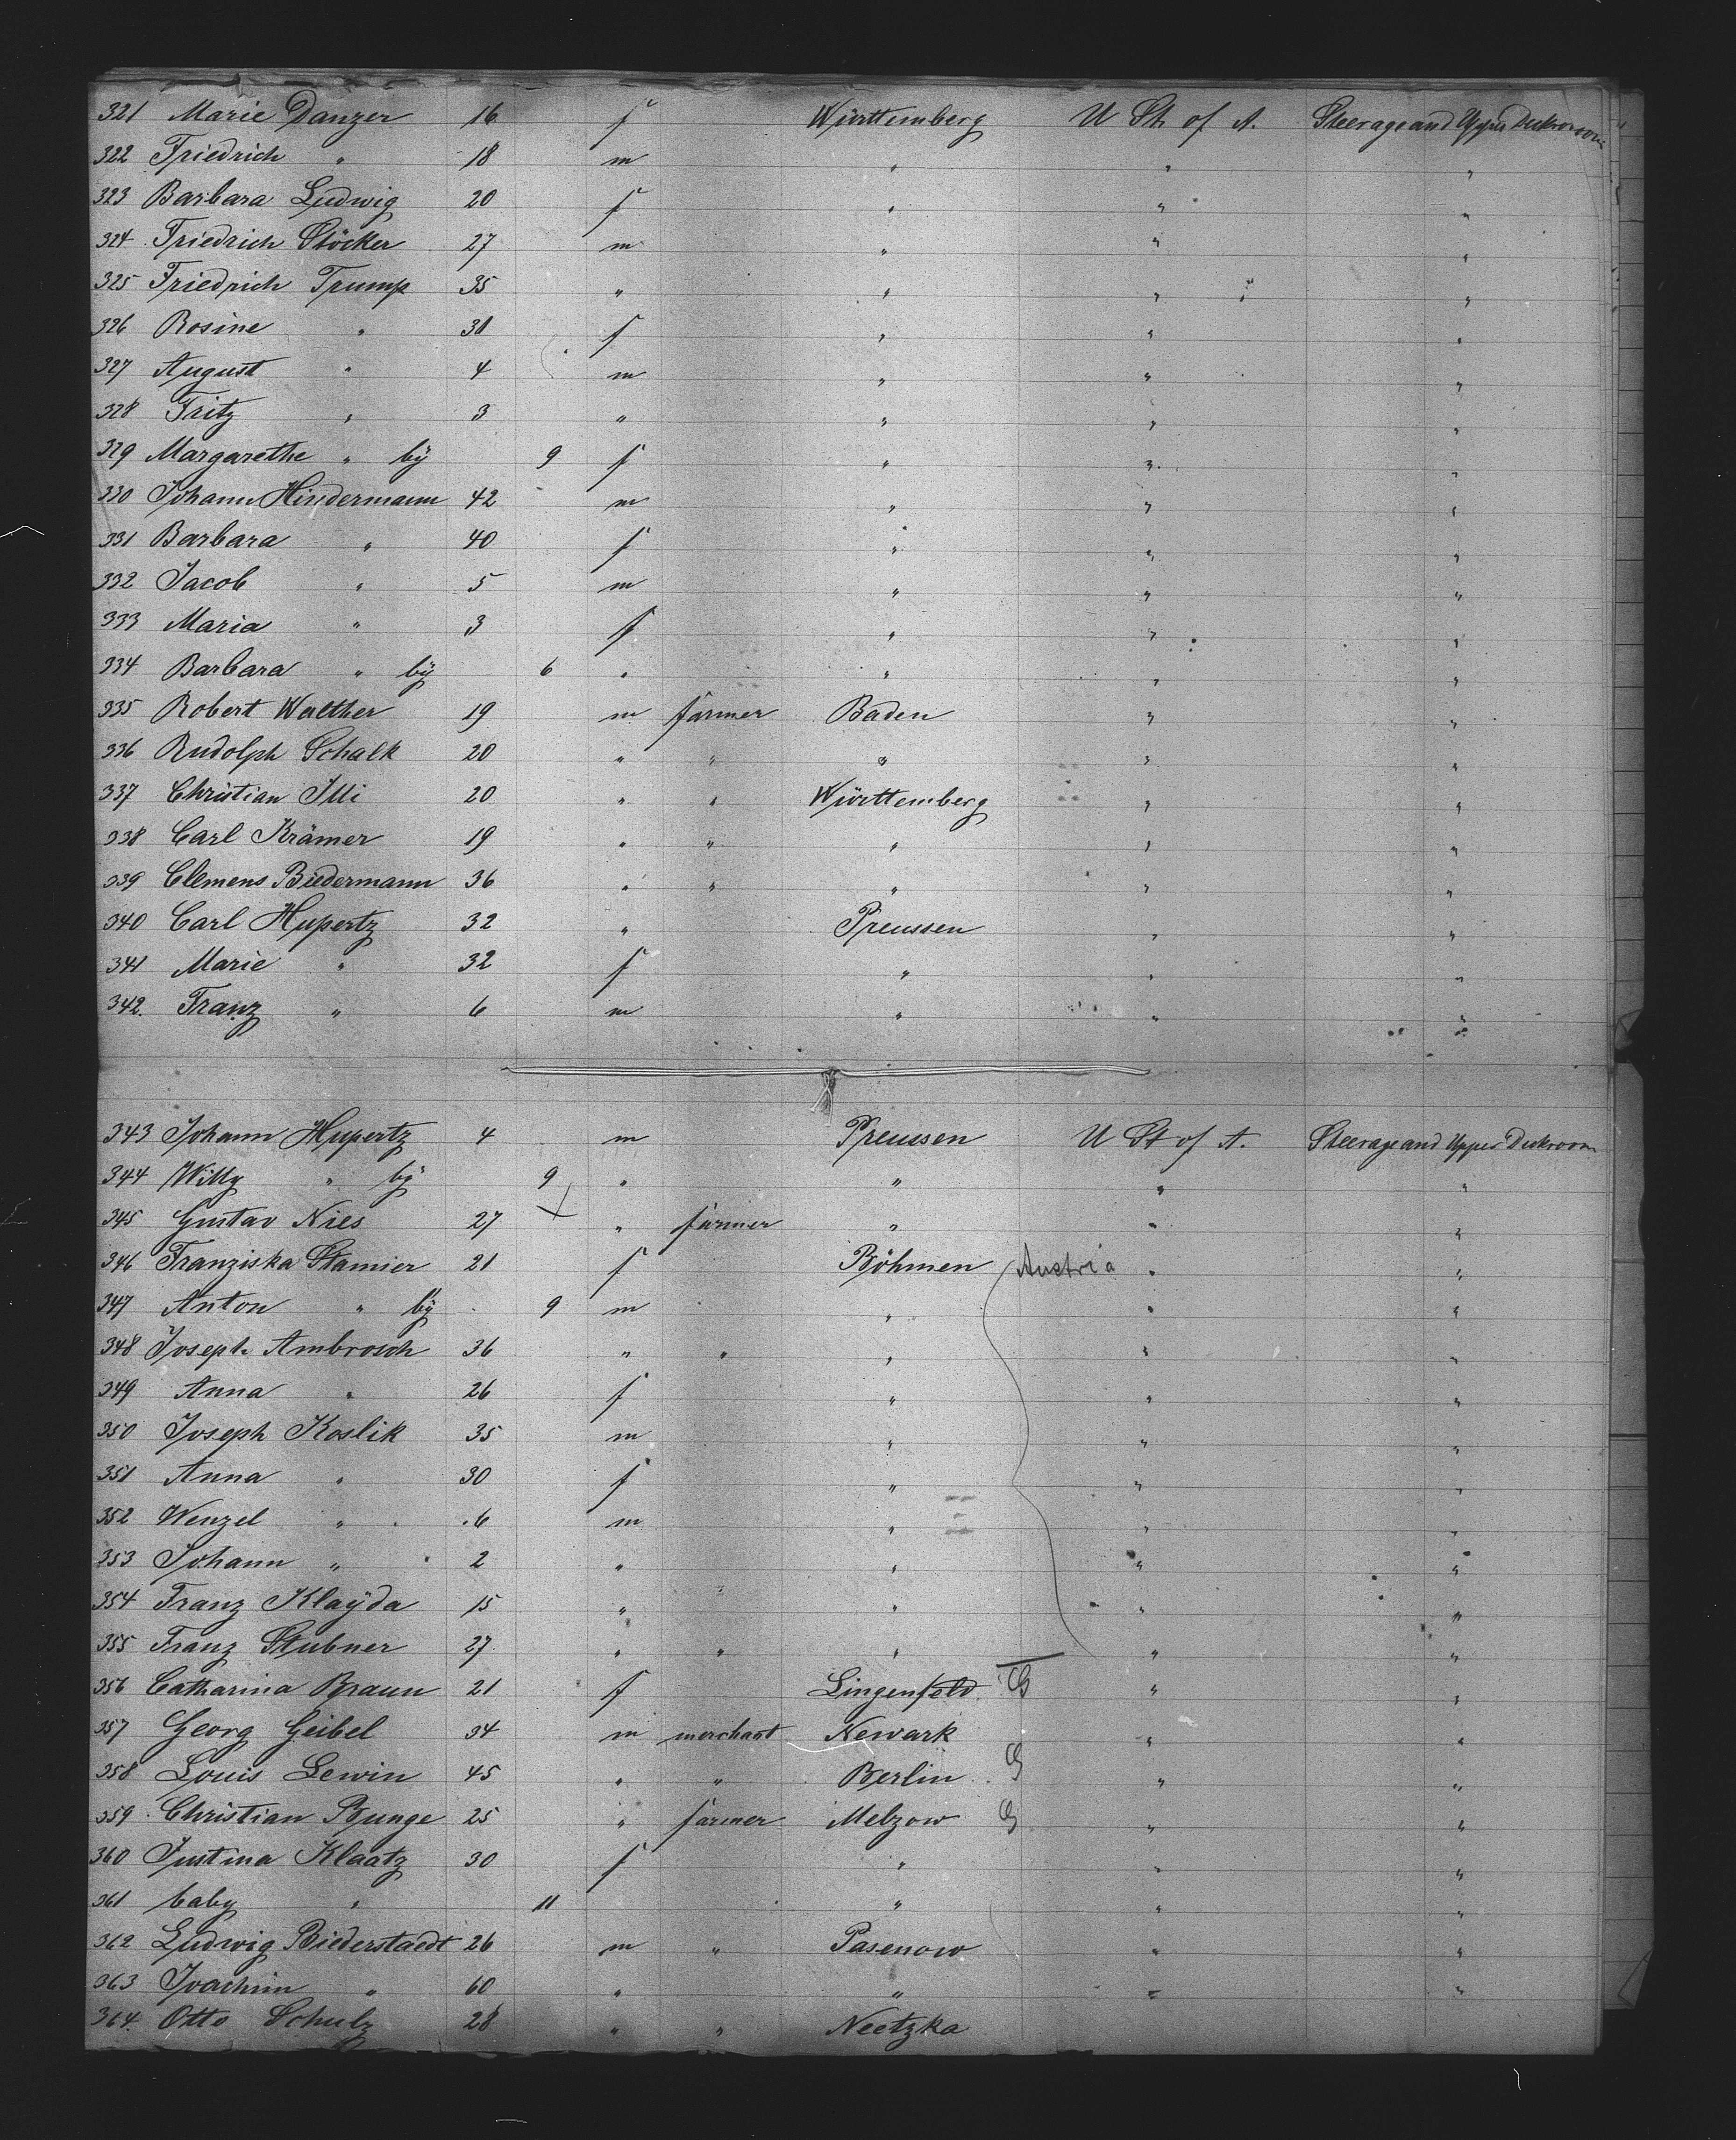 321 Marie Danzer 16 f Württemberg U St. of A. Steerage and Upper Deckroom
322 Friedrich " 18 m " " "
323 Barbara Ludwig 20 f " " "
324 Friedrich Stöcker 27 m " " "
325 Friedrich Trump 35 " " " "
326 Rosine " 31 f " " "
327 August " 4 m " " "
328 Fritz " 3 " " " "
329 Margarethe " by 9 f " " "
330 Johann Hindermann 42 m " " "
331 Barbara " 40 f " " "
332 Jacob " 5 m " " "
333 Maria " 3 f " " "
334 Barbara " by 6 " " " "
335 Robert Walther 19 m farmer Baden " "
336 Rudolph Schalk 20 " " " " "
337 Christian Illi 20 " " Württemberg " "
338 Carl Krämer 19 " " " " "
339 Clemens Biedermann 36 " " " " "
340 Carl Hupertz 32 " Preussen " "
341 Marie " 32 f " " "
342. Franz " 6 m " " "
343 Johann Hupertz 4 m Preussen U St of A. Steerage and Upper Deckroom
344 Willy " by 9 " " " "
345 Gustav Nies 27 " farmer " " "
346 Franziska Stamier 21 f Böhmen Austria " "
347 Anton " by 9 m " " "
348 Joseph Ambrosch 36 " " " " "
349 Anna " 26 f " " "
350 Joseph Koslik 35 m " " "
351 Anna " 30 f " " "
352 Wenzel " 6 m " " "
353 Johann " 2 " " " "
354 Franz Klaÿda 15 " " " " "
355 Franz Stubner 27 " " " " "
356 Catharina Braun 21 f Lingenfeld G " "
357 Georg Geibel 34 m merchant Newark " "
358 Louis Lewin 45 " " Berlin G " "
359 Christian Bunge 25 " farmer Melzow G " "
360 Justina Klaatz 30 f " " "
361 baby " 11 " " "
362 Ludwig Biederstaedt 26 m " Pasenow " "
363 Joachim " 60 " " " "
364. Otto Schulz 28 " " Neetzka